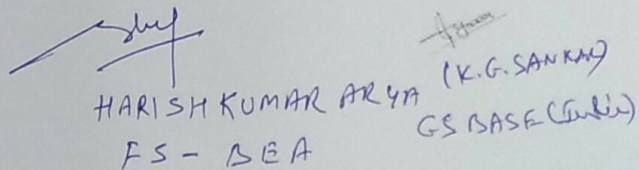 HARISH KUMAR ARYA
FS - BEA
(K.G. SANKAR)
GS BASE (India)